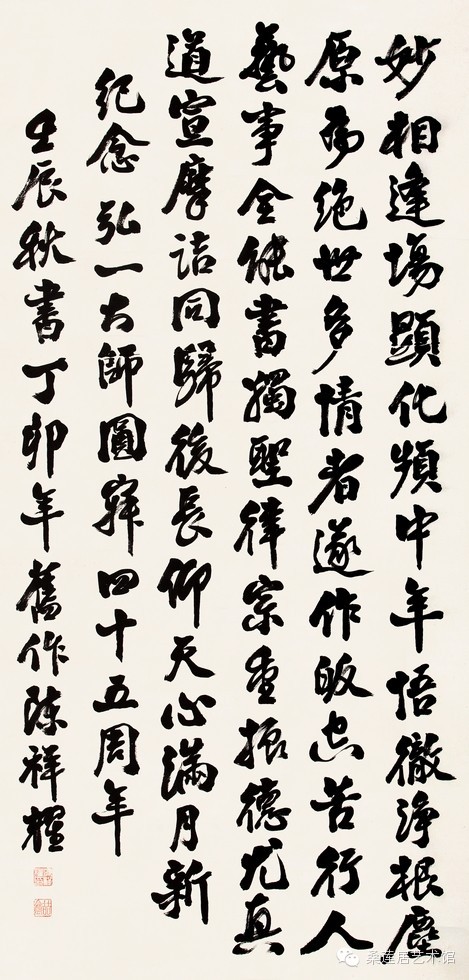 妙相逢場顯化頻中年悟徹淨根塵
原為絕世多情者遂作皈空苦行人
藝事全能書獨聖律宗重振德尤真
道宣摩詰同歸後長仰天心滿月新
紀念弘一大師圓寂四十五周年
壬辰秋書丁卯年舊作陳祥耀
桑莲居艺术馆